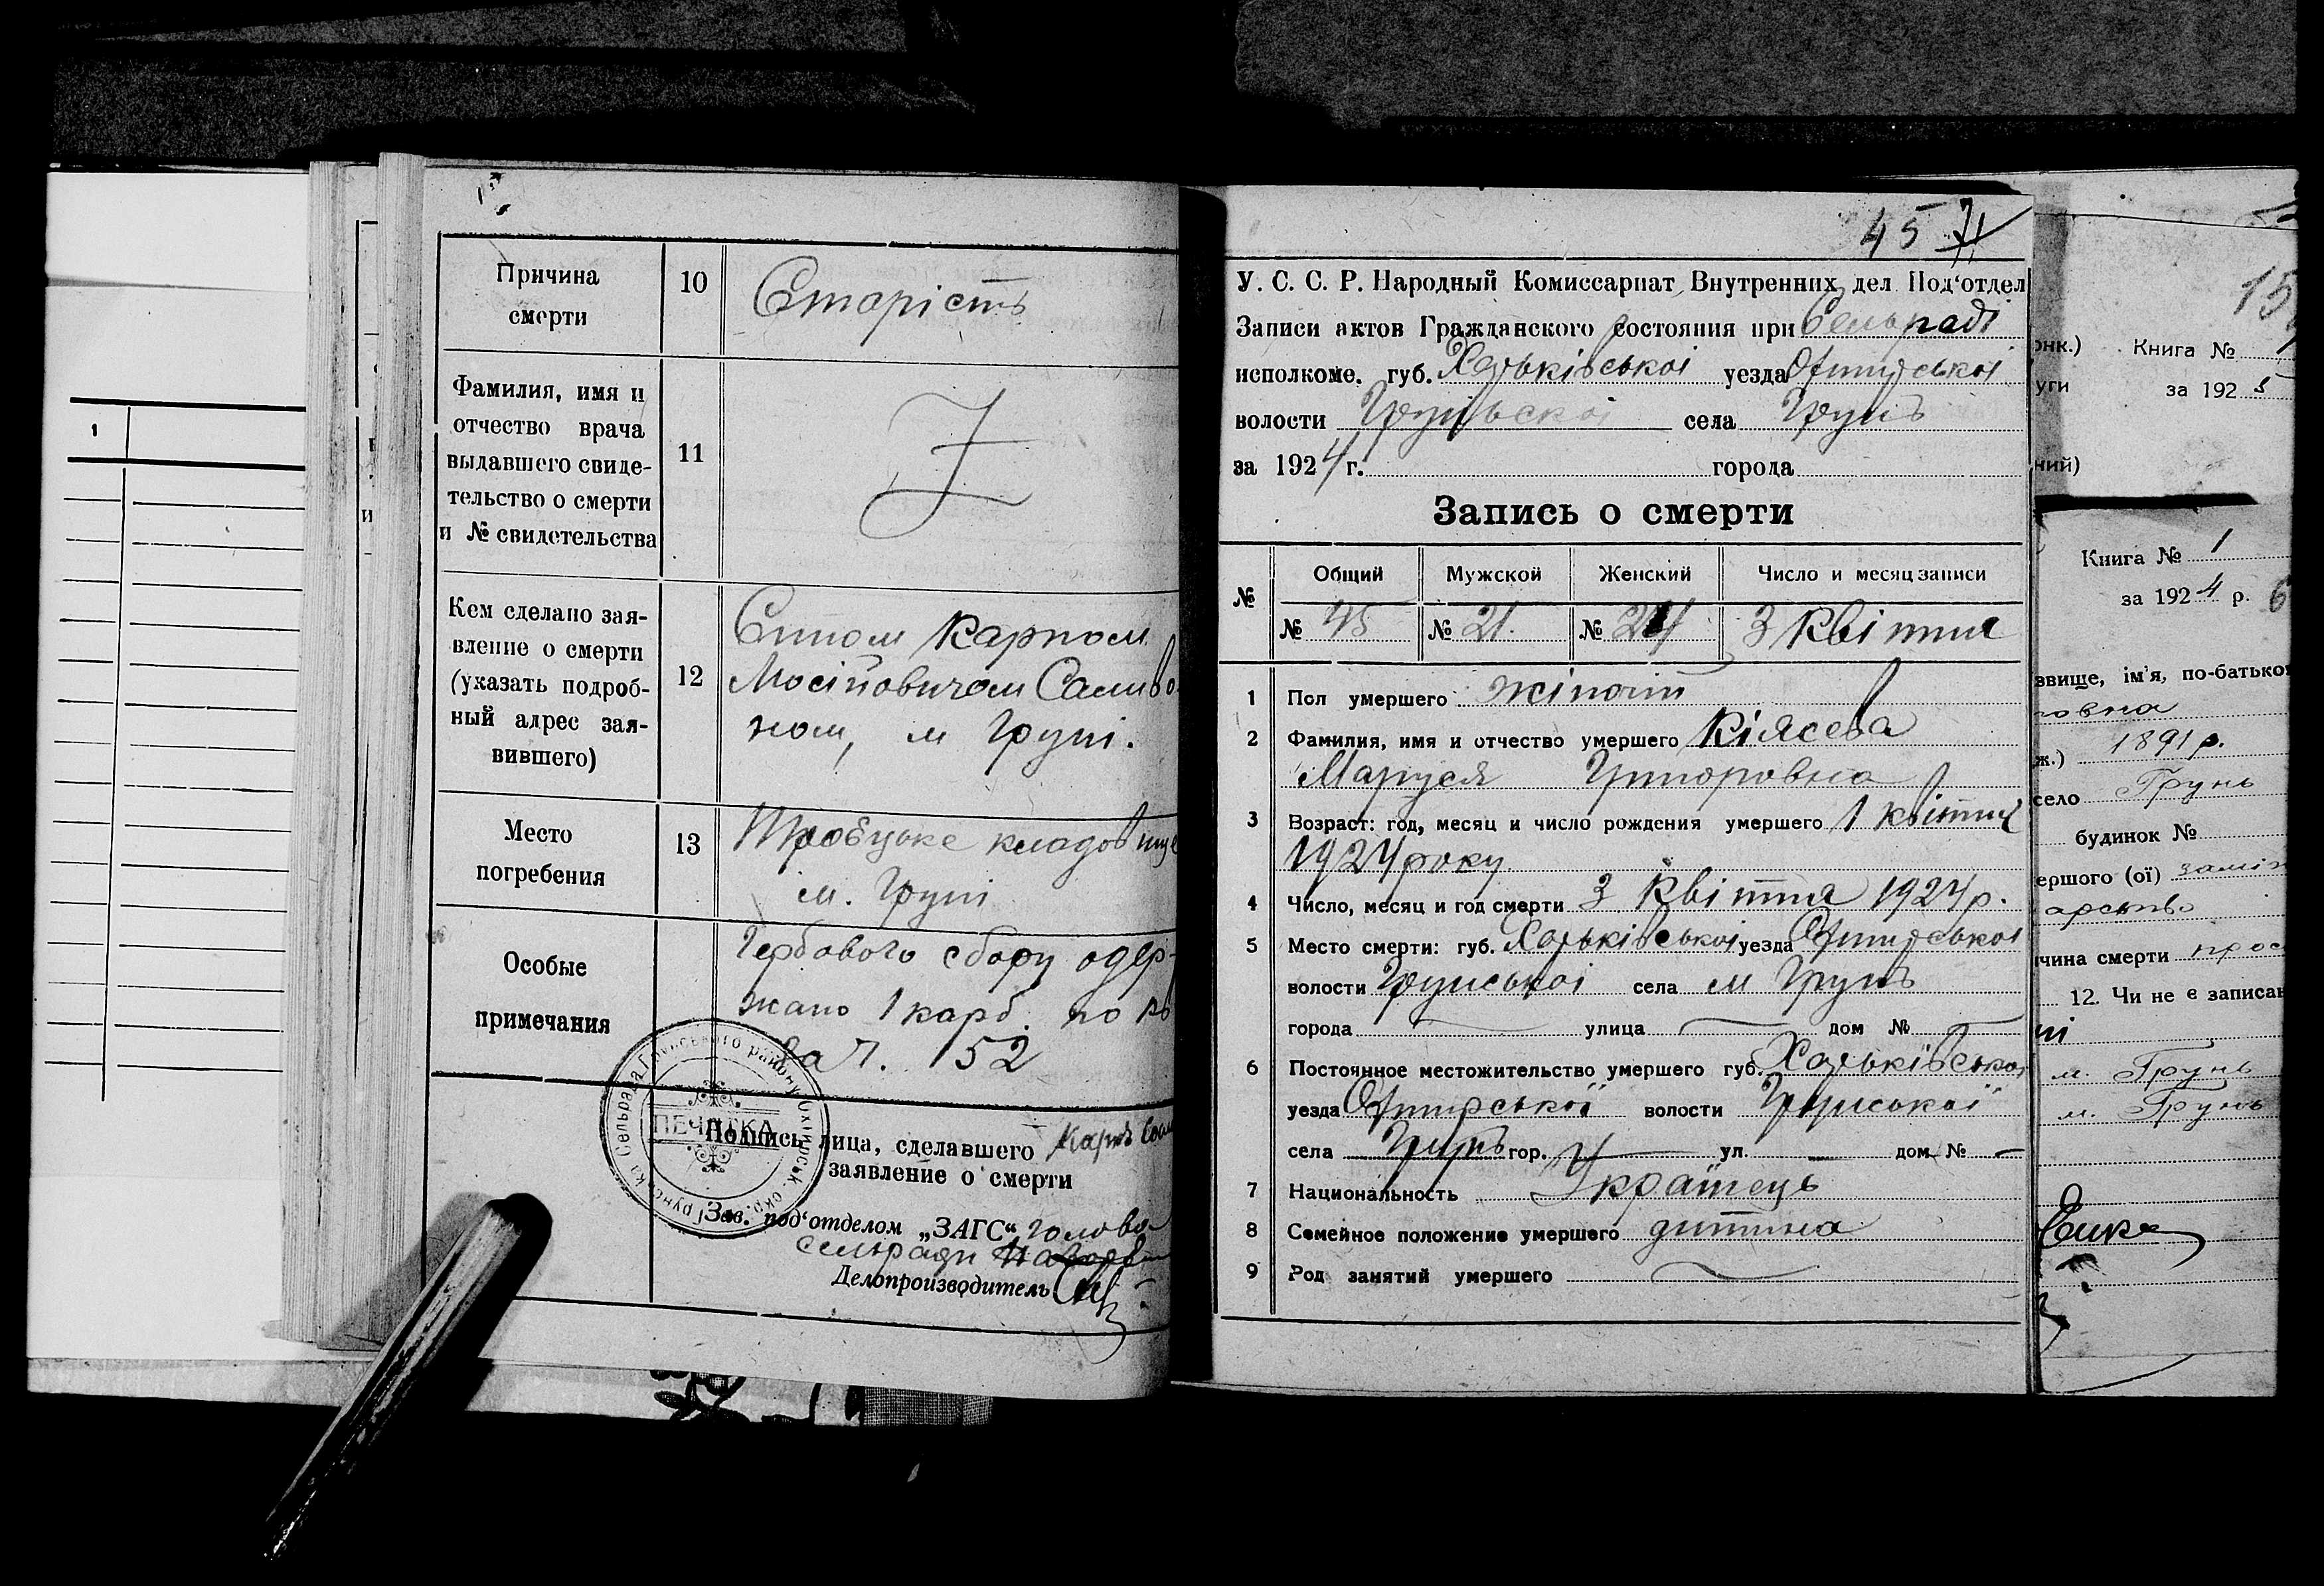 1
Причина
смерти
10
Старість
Фамилия, имя и
отчество врача
выдавшего свиде-
тельство о смерти
и № свидетельства
11
Кем сделано зая-
вление о смерти
(указать подроб-
ный адрес зая-
вившего)
12
Сином Карпом
Мосіповичом
ном, м Груні.
Место
погребения
13
кладовище
м. Груні
Особые
примечания
Гербового сбору одер-
жано 1 карб. по
52
ПЕЧАТКА
Подпись лица, сделавшего
заявление о смерти
Зав. под‘отделом „ЗАГС“ голова
сельради
Делопроизводитель
45 71
У. С. С. Р. Народный Комиссариат Внутренних дел Под‘отдел
Записи актов Гражданского состояния при Сельраді
исполкоме. губ. Харьківськоі уезда Охтирськоі
волости Груньскоі села Грунь
за 1924 г. города
Запись о смерти
№ Общий Мужской Женский Число и месяц записи
№ 45 № 21. № 24 3 Квітня
1 Пол умершего жіночий
2 Фамилия, имя и отчество умершего Кіяєва
Маруся
3 Возраст: год, месяц и число рождения умершего 1 квітня
1924 року.
4 Число, месяц и год смерти 3 Квітня 1924 р.
5 Место смерти: губ. Харьківськоі уезда Охтирськоі
волости Груньськоі села м Грунь
города улица дом №
6 Постоянное местожительство умершего губ. Харьківськоі
уезда Охтирської волости Груньської
села Грунь гор. ул. дом №
7 Национальность Українець
8 Семейное положение умершего дитина
9 Род занятий умершего
15
Книга №
за 1925
Книга № 1
за 1924 р. 6
ввище, ім’я, по-батьков
овна
ж.) 1891 р.
село Грунь
будинок №
ершого (ої) заміж
арство
чина смерти
12. Чи не є записан
м. Грунь
м. Грунь